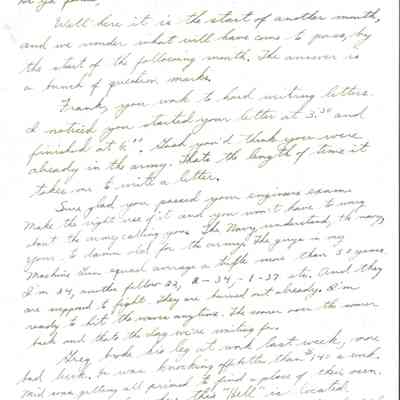 Well here it is the start of another month,
and we wonder what will have come to pass, by
the start of the following month. The answer is
a bunch of question marks.
Frank, you work to hard writing letters.
I noticed you started your letter at 3:30 and
finished at 6:00. Gosh you'd think you were
already in the army. Thats the length of time it
takes me to write a letter.
Sure glad you passed your engineers exams
Make the right use of it and you won't have to worry
about the army calling you. The Navy understand, the navy
your to damn old for the army. The guys in my
Machine Gun squad average a trifle more than 30 years.
I'm 34, another fellow 22, 2-34, 1-37 etc. And they
are supposed to fight. They are burned out already. I'm
ready to hit the waves anytime. The sooner over the sooner
back and thats the day we're waiting for.
Greg broke his leg at work last week, more
bad luck. He was knocking off better than $40 a week.
Mid was getting all primed to find a place of their own.
this "Hell" is located,